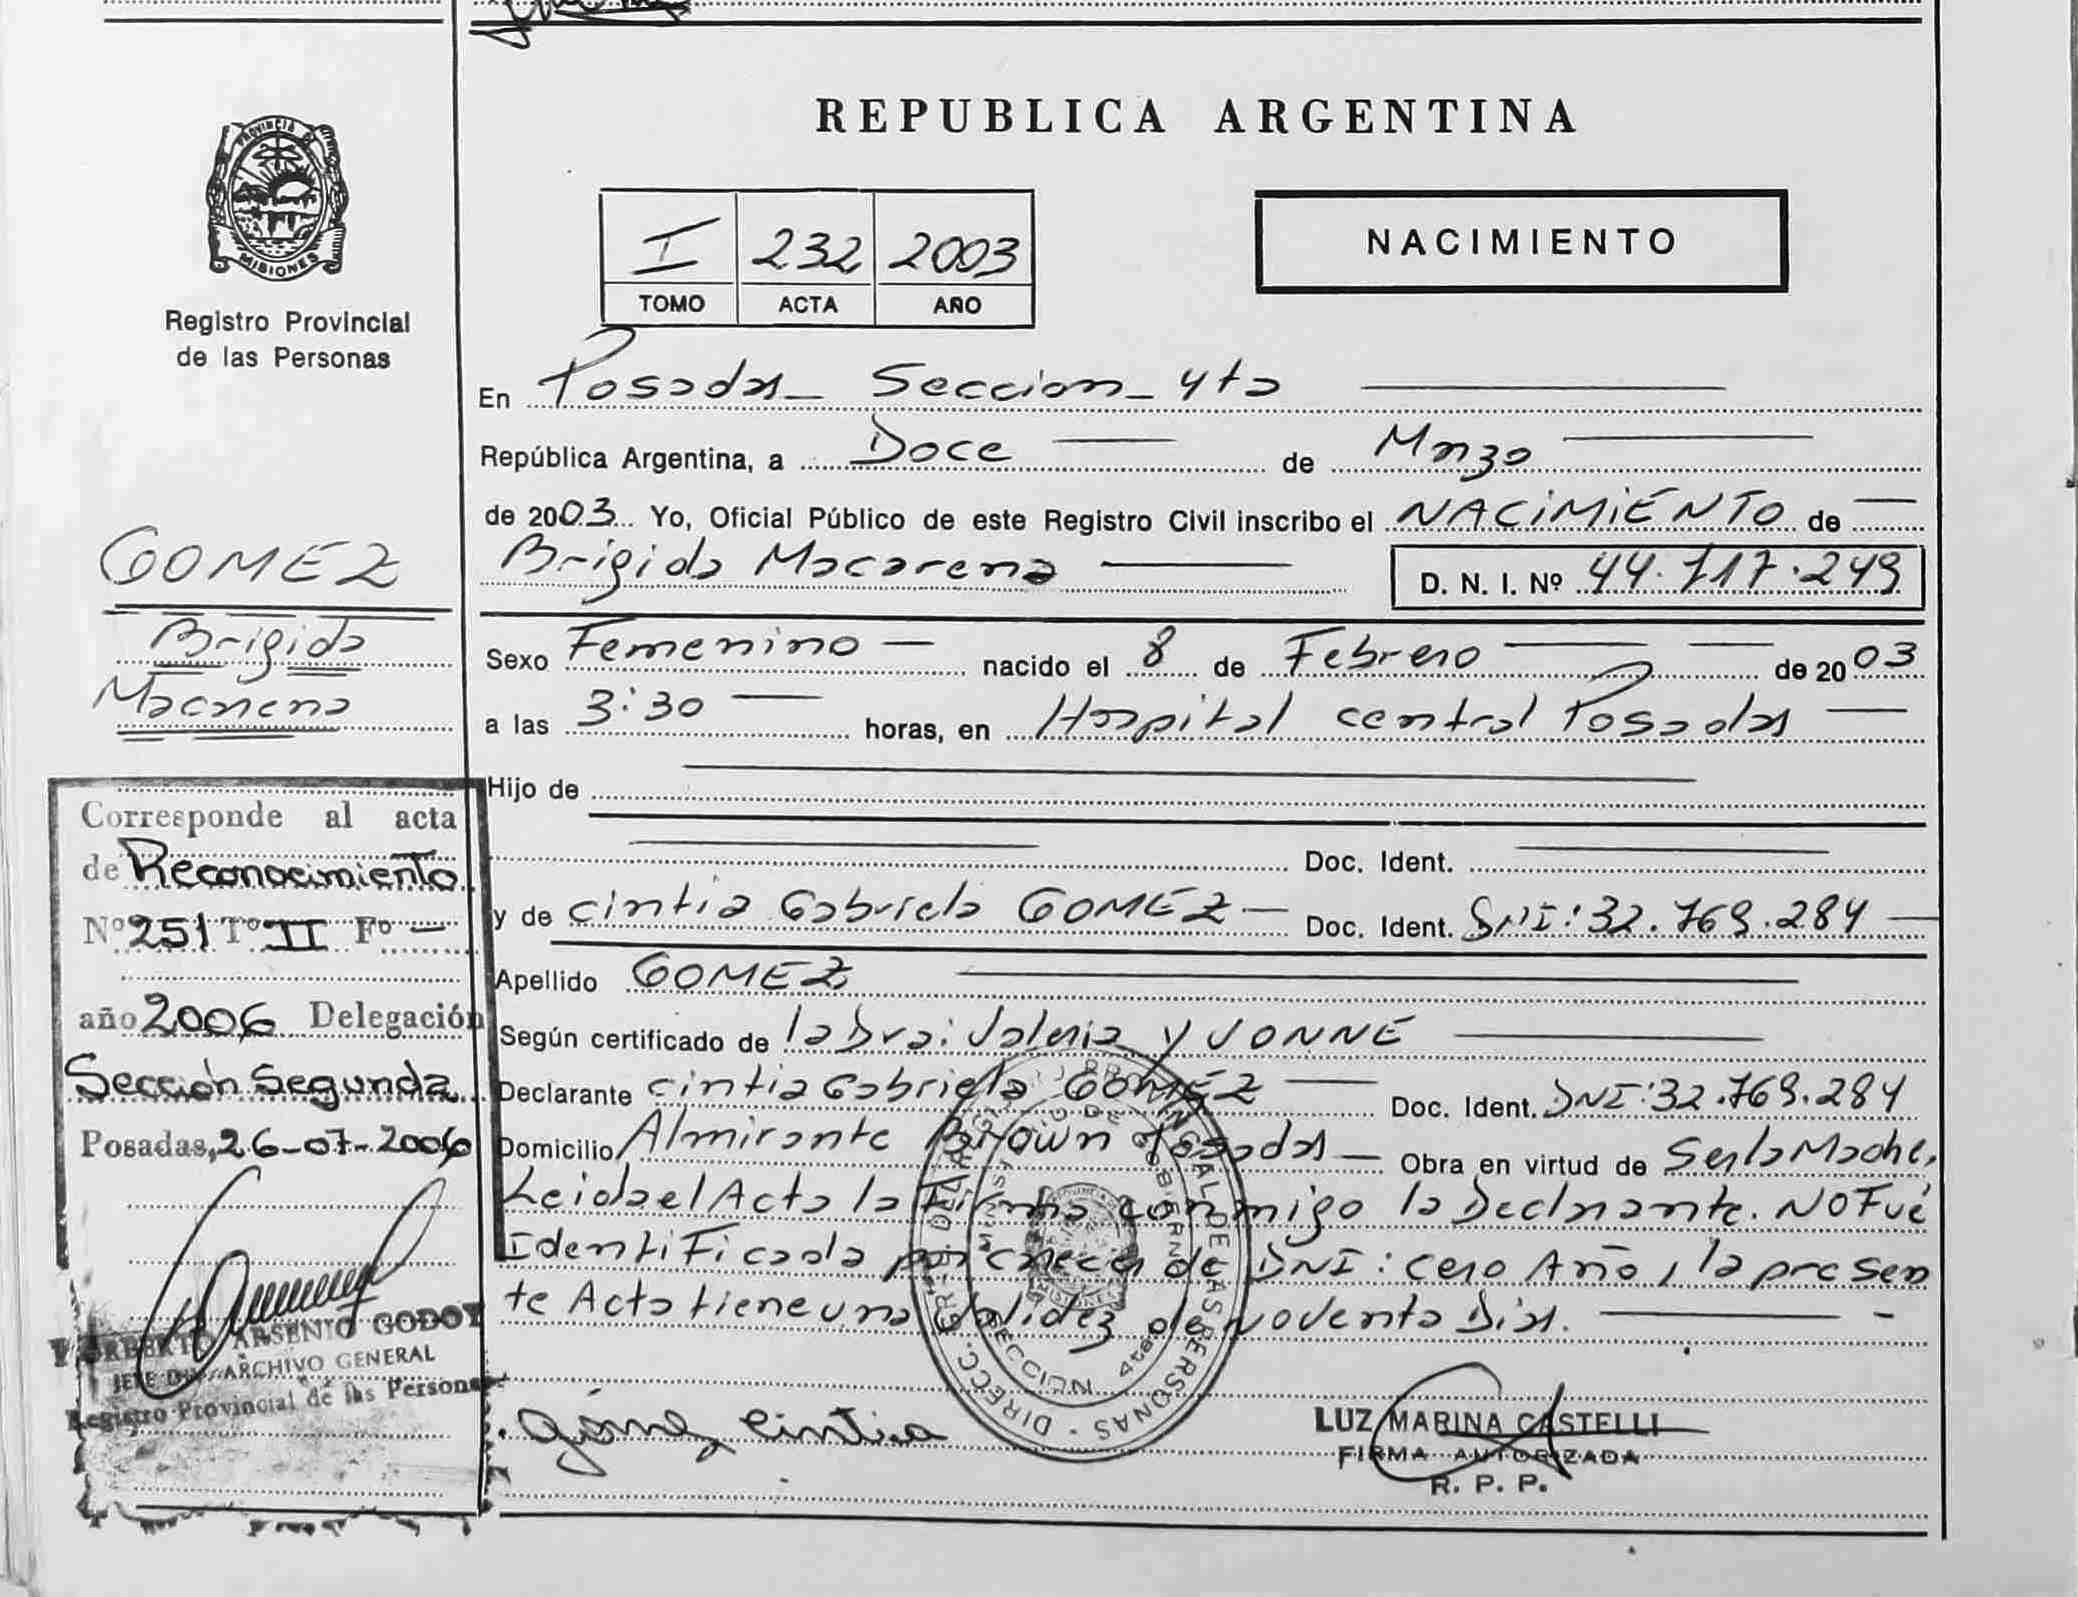 REPUBLICA ARGENTINA
PROVINCIA DE
MISIONES
Registro Provincial
de las Personas
I 232 2003
TOMO ACTA AÑO
NACIMIENTO
En Posadas_ Seccion_ 4ta
República Argentina, a Doce de Marzo
de 2003 Yo, Oficial Público de este Registro Civil inscribo el NACIMIENTO de
Brigida Macarena D. N. I. Nº 44.717.249
Sexo Femenino nacido el 8 de Febrero de 2003
a las 3:30 horas, en Hospital central Posadas
Hijo de
Doc. Ident.
y de Cintia Gabriela GOMEZ Doc. Ident. DNI: 32.769.284
Apellido GOMEZ
Según certificado de la Dra: Valeria YVONNE
Declarante Cintia Gabriela GOMEZ Doc. Ident. DNI: 32.769.284
Domicilio Almirante Brown Posadas Obra en virtud de Ser la Madre,
Leida el Acta la Firma conmigo la Declarante. NO Fué
Identificada por carecer de DNI: cero Año, la presen
te Acta tiene una validez de noventa Dias.
Gómez Cintia
LUZ MARINA CASTELLI
FIRMA AUTORIZADA
R. P. P.
GOMEZ
Brigida
Macarena
Corresponde al acta
de Reconocimiento
Nº 251 Tº II Fº
año 2006 Delegación
Sección Segunda
Posadas, 26-07-2006
NORBERTO ARSENIO GODOY
JEFE ARCHIVO GENERAL
Registro Provincial de las Personas
SECCION 4ta